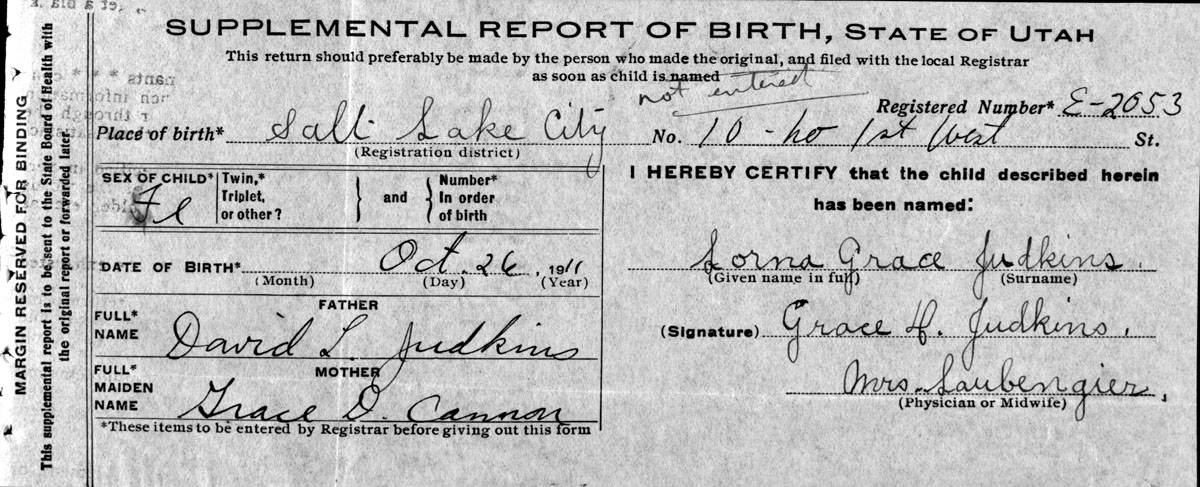 SUPPLEMENTAL REPORT OF BIRTH, STATE OF UTAH
This return should preferably be made by the person who made the original, and filed with the local Registrar
as soon as child is named
not entered
Registered Number* E-2053
Place of birth* Salt Lake City No. 10 - no 1st West St.
(Registration district)
SEX OF CHILD* Fe Twin,* Triplet, or other? } and { Number* In order of birth
I HEREBY CERTIFY that the child described herein
has been named:
DATE OF BIRTH* Oct. 26, 1911
(Month) (Day) (Year)
Lorna Grace Judkins.
(Given name in full) (Surname)
FATHER
FULL* NAME David L. Judkins
(Signature) Grace H. Judkins.
MOTHER
FULL* MAIDEN NAME Grace D. Cannon
Mrs. Laubengier,
(Physician or Midwife)
*These items to be entered by Registrar before giving out this form
MARGIN RESERVED FOR BINDING
This supplemental report is to be sent to the State Board of Health with
the original report or forwarded later.